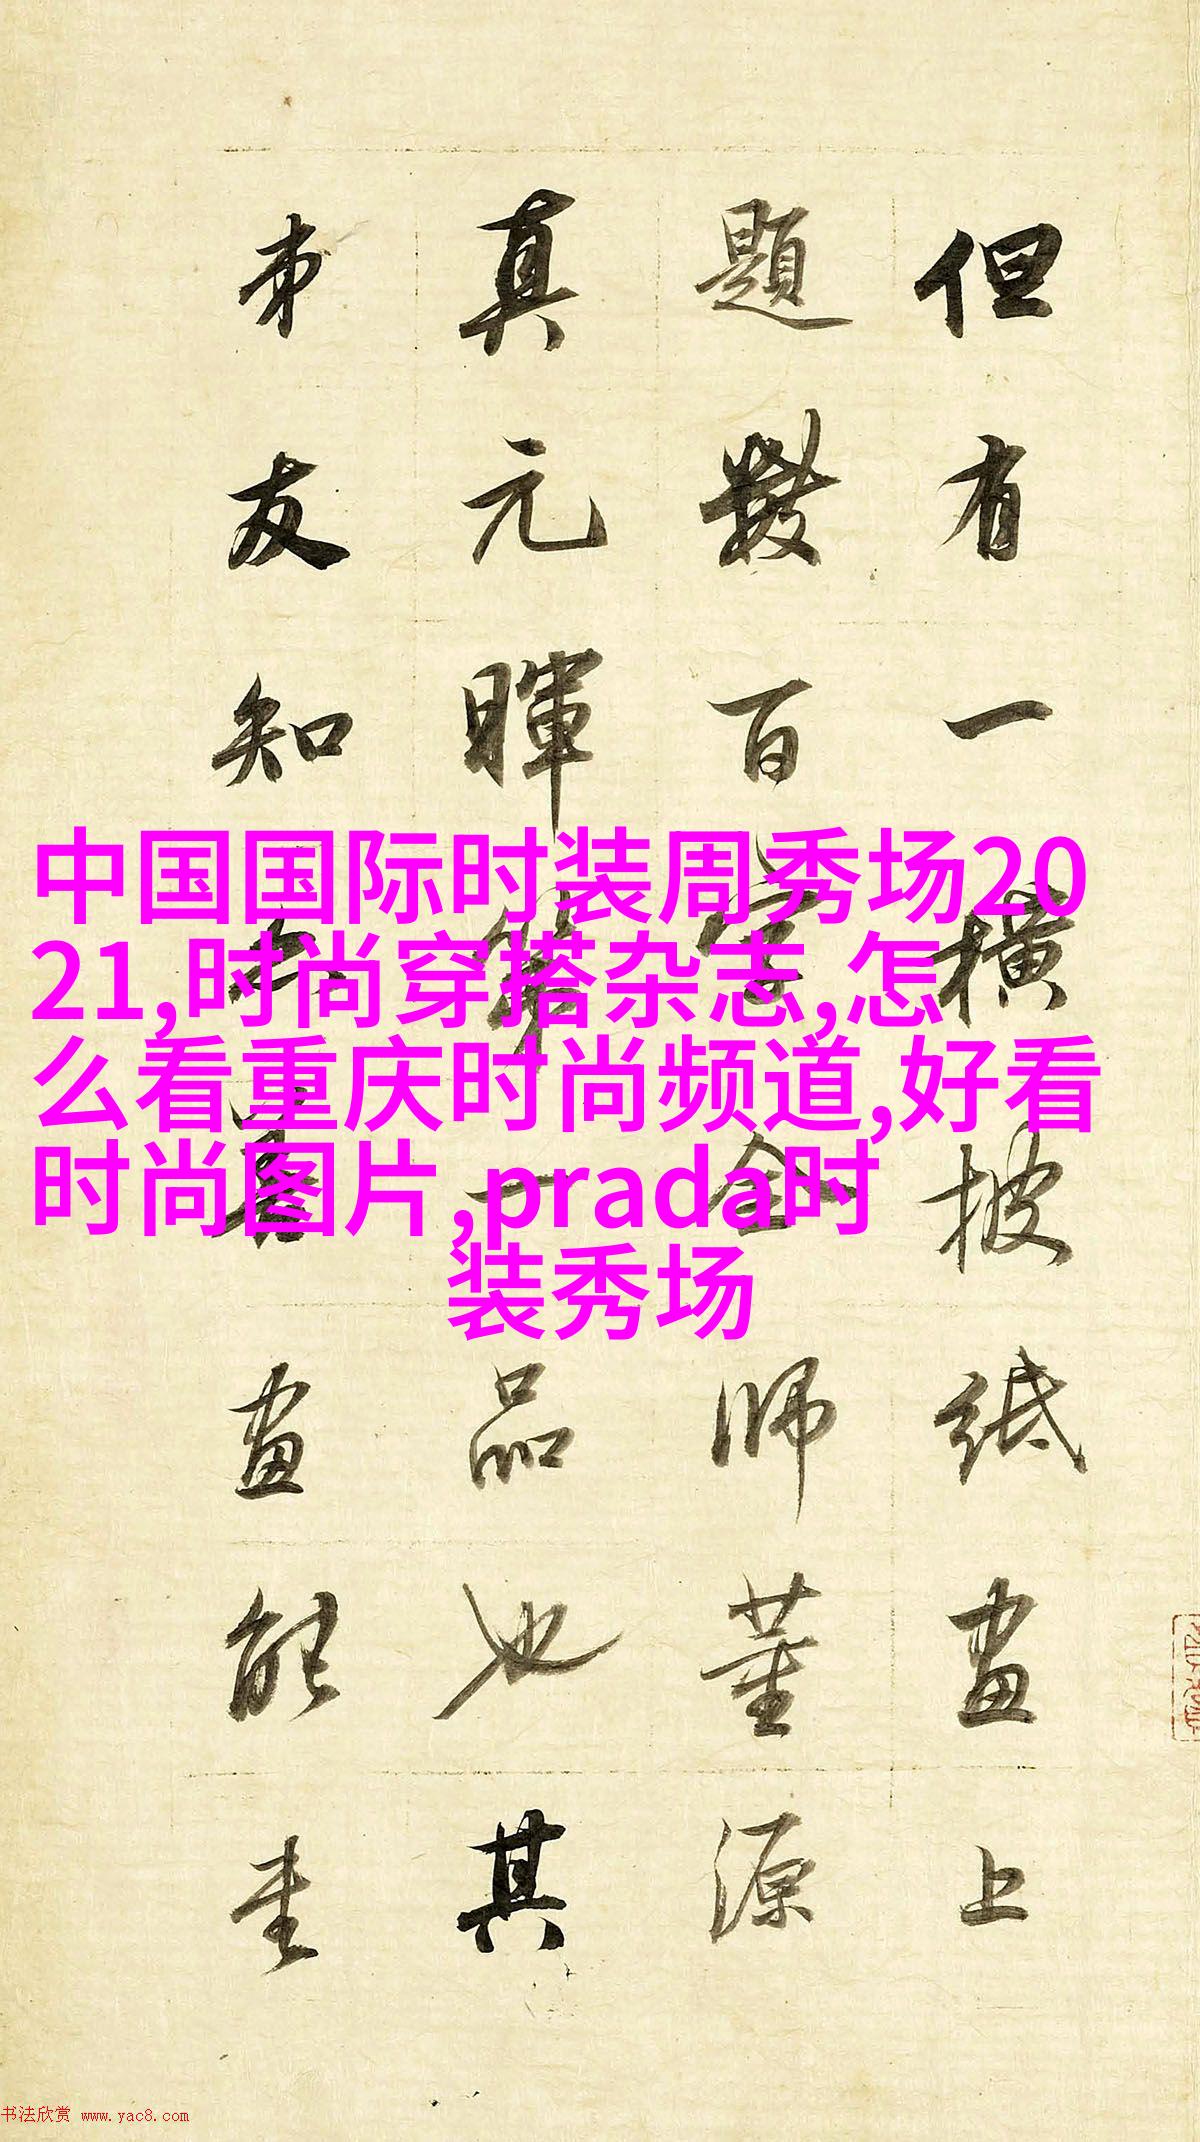 中国国际时装周秀场20
21,时尚穿搭杂志,怎
么看重庆时尚频道,好看
时尚图片,prada时
装秀场
但有一横披紙畫上
題數百字全師董源
真元暉第一品也其
友知善畫能
书法欣赏 www.yac8.com